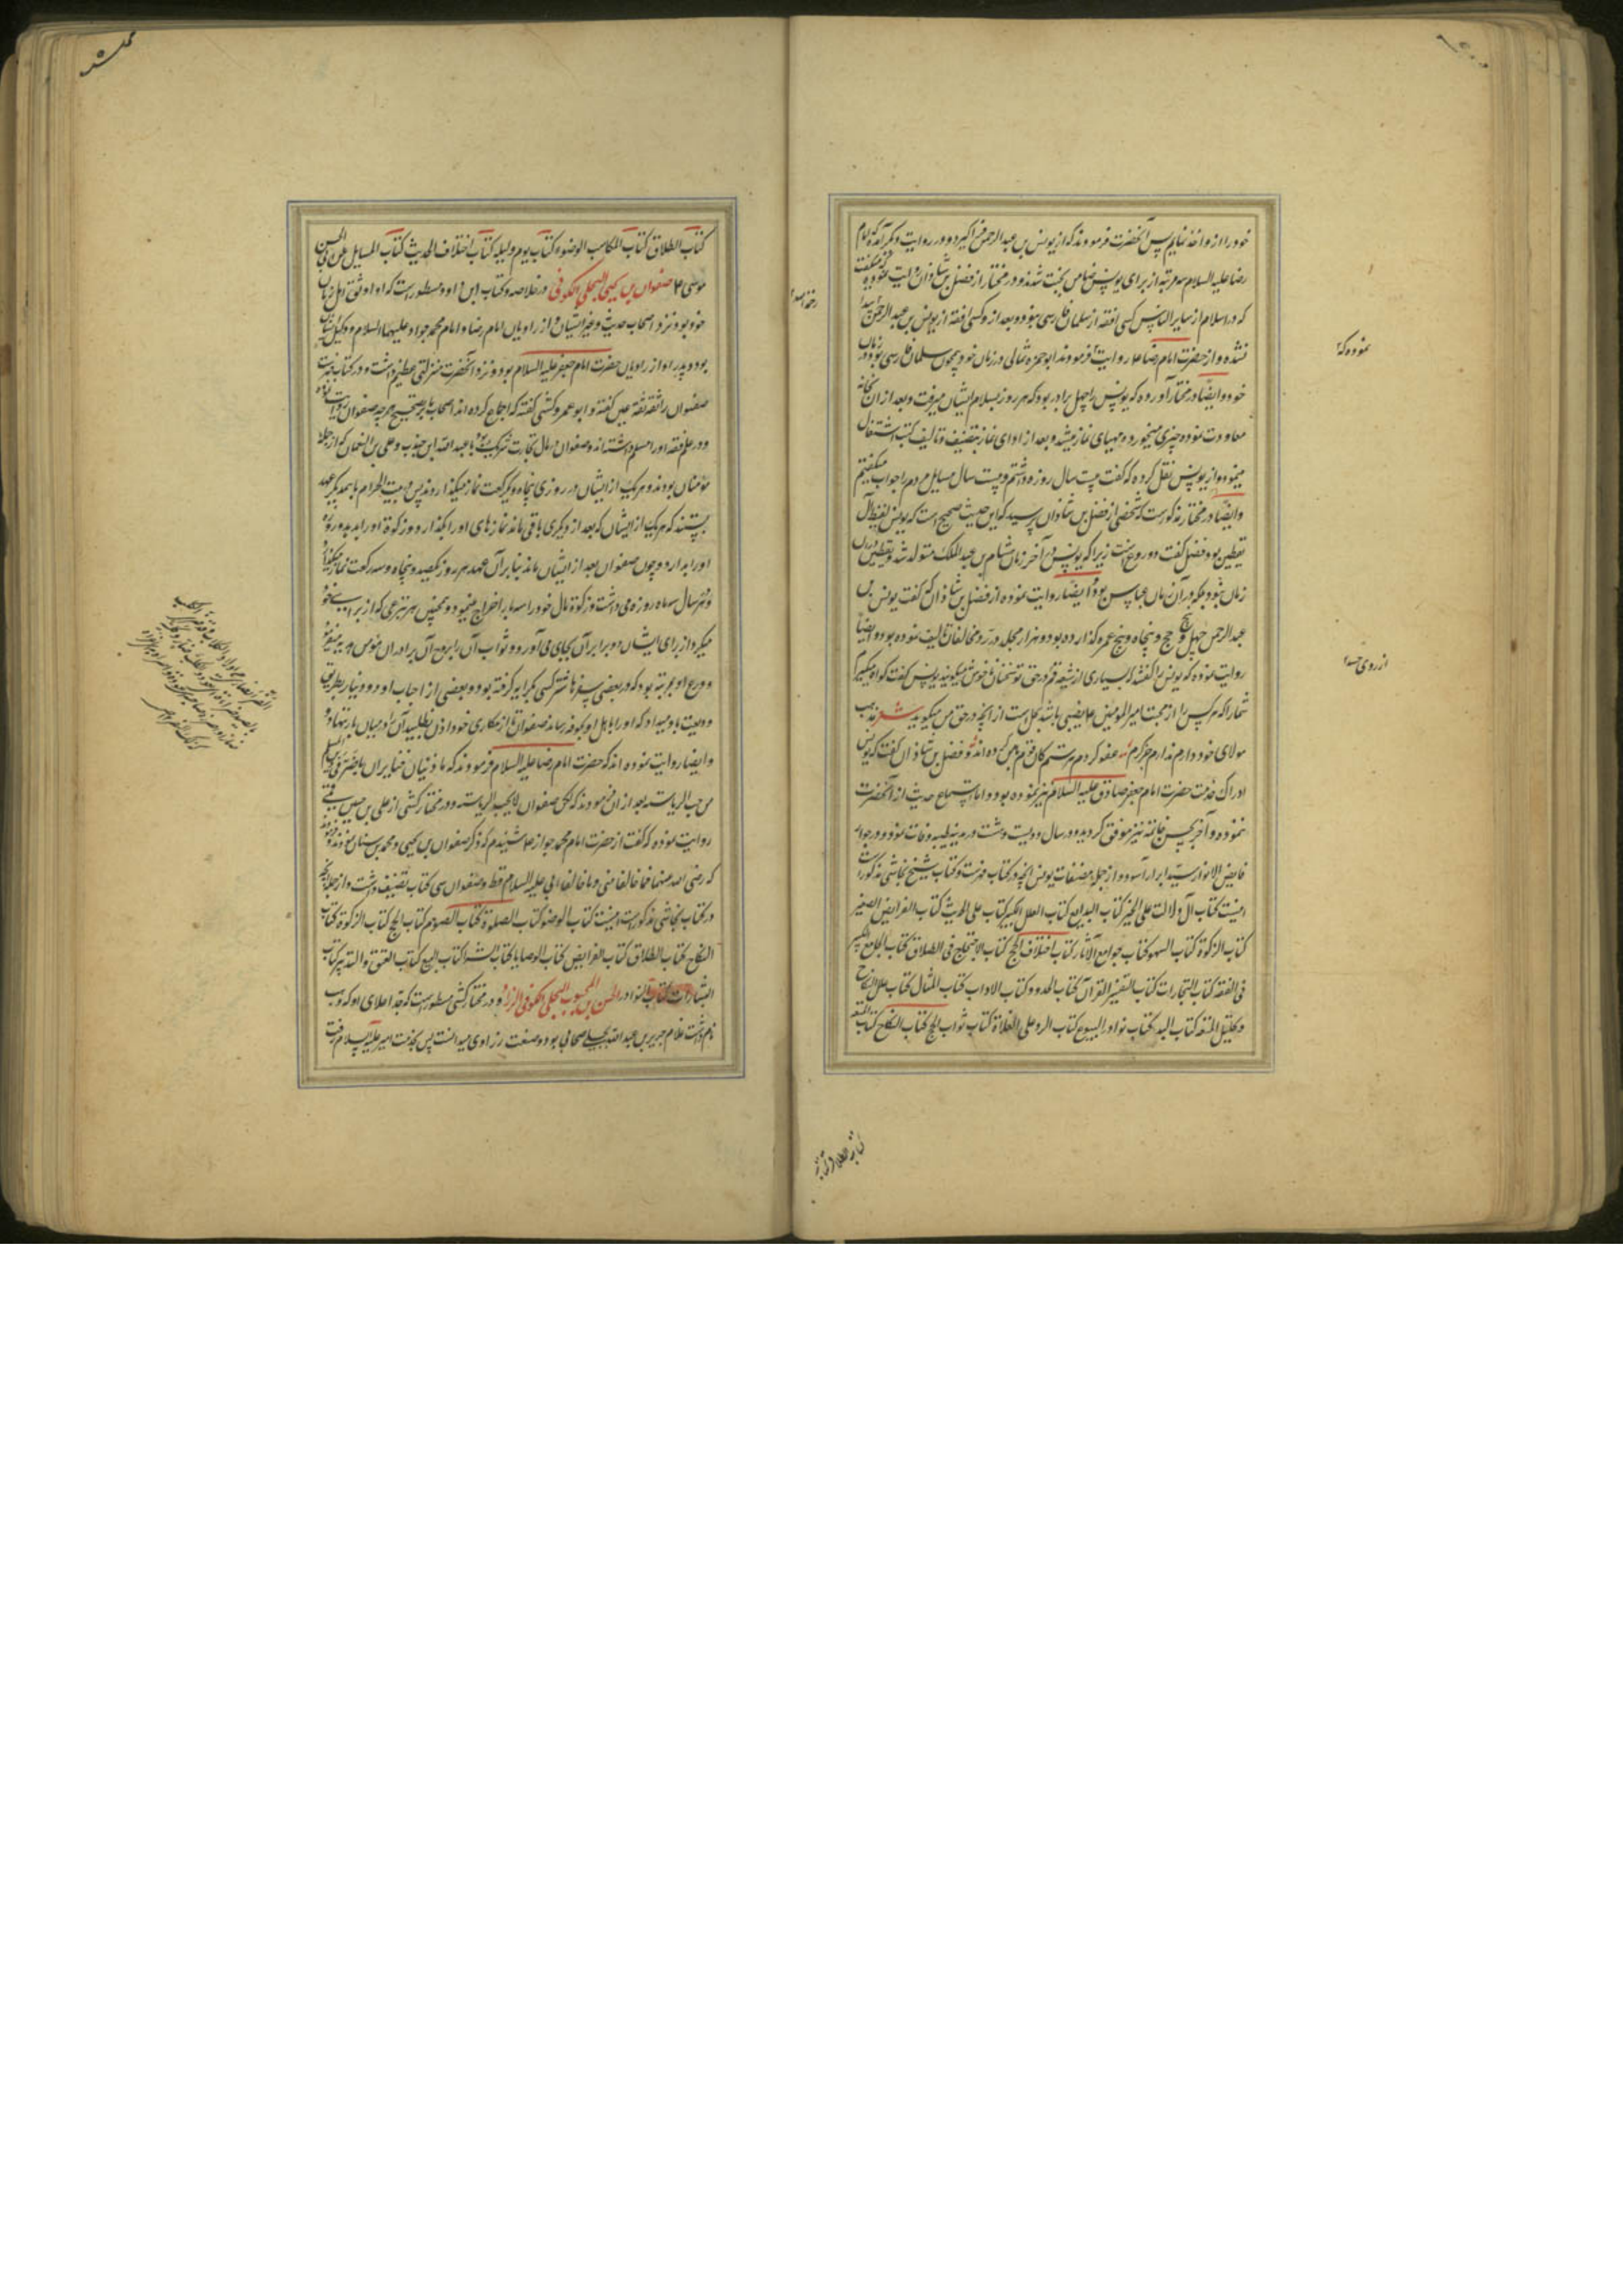 خود را ازو اخذ نمایم پس آنحضرت فرمودند که از یونس بن عبدالرحمن اکبر و در روایت دیگر آمده که امام
رضا علیه السلام سه مرتبه از برای یونس ضامن بهشت شدند و در مختار از فضل بن شاذان روایت نموده که میگفت
که در اسلام از سایر الناس کسی افقه از سلمان فارسی نبود و بعد ازو کسی افقه از یونس بن عبدالرحمن پیدا
نشده و از حضرت امام رضا ع روایت فرمودند ابو حمزه ثمالی در زمان خود همچون سلمان فارسی بود در زمان
خود و ایضا در مختار آورده که یونس را چهل برادر بود که هر روز بسلام ایشان میرفت و بعد از آن بخانه
معاودت نموده چیزی میخورد و مهیای نماز میشد و بعد از ادای نماز بتصنیف و تالیف کتب اشتغال
مینمود و از یونس نقل کرده که گفت بیست سال روزه داشتم و بیست سال مسایل مردم را جواب میگفتم
و ایضا در مختار مذکورست که شخصی از فضل بن شاذان پرسید که این حدیث صحیح است که یونس لقیط آل
یقطین بود فضل گفت دروغست زیرا که یونس در آخر زمان هشام بن عبدالملک متولد شد و یقطین در آن
زمان نبود بلکه در آن زمان عباس بود و ایضا روایت نموده از فضل بن شاذان که گفت یونس بن
عبدالرحمن چهل و پنج حج و پنجاه و پنج عمره گذارده بود و هزار مجلد در رد مخالفان تالیف نموده بود و ایضا
روایت نموده که یونس را گفتند که بسیاری از شیعه قم در حق تو سخنان ناخوش میگویند یونس گفت که گواه میگیرم
شما را که هر کس را از محبت امیر المومنین ع نصیبی باشد بحل است از آنچه در حق من میگوید شعر مذهب
مولای خود دارم ندارم جز کرم عفو کردم بر ستمکار و فضل بن شاذان گفت که یونس
ادراک خدمت حضرت امام جعفر صادق علیه السلام نیز نموده بود و اما استماع حدیث از آنحضرت
ننموده و آخر بحسن خاتمه نیز موفق گردیده و در سال دویست و هشت در مدینه طیبه وفات نمود و در جوار
فایض الانوار سید ابرار آسود و از جمله مصنفات یونس آنچه در کتاب فهرست و کتاب شیخ نجاشی مذکورست
اینست کتاب آل دلالت علی الخیر کتاب البدایع کتاب العلل الکبیر کتاب علل الحدیث کتاب الفرایض الصغیر
کتاب الزکوة کتاب السهو کتاب جوامع الآثار کتاب اختلاف الحج کتاب الاحتجاج فی الطلاق کتاب الجامع الکبیر
فی الفقه کتاب التجارات کتاب التفسیر القرآن کتاب الحدود کتاب الاداب کتاب المثال کتاب علل النکاح
و تحلیل المتعه کتاب البداء کتاب نوادر البیوع کتاب الرد علی الغلاة کتاب ثواب الحج کتاب النکاح کتاب المتعه
نموده که
از روی حسد
کتاب الطلاق کتاب المکاسب الوضوء کتاب یوم و لیله کتاب اختلاف الحدیث کتاب المسایل عن ابی الحسن
موسی ع صفوان بن یحیی البجلی الکوفی در خلاصه و کتاب ابن داود مسطورست که او اوثق اهل زمان
خود بود نزد اصحاب حدیث و غیر ایشان و از راویان امام رضا و امام محمد جواد علیهما السلام و وکیل ایشان
بود و پدر او از راویان حضرت امام جعفر علیه السلام بود و نزد آنحضرت منزلتی عظیم داشت و در کتاب فهرست
صفوان را ثقه ثقه عین گفته و ابو عمرو کشی گفته که اجماع کرده اند اصحاب ما بر تصحیح هر چه صفوان روایت نموده
و در علم فقه او را مسلم داشته اند و صفوان در مال تجارت شریک بود با عبدالله ابن جندب و علی بن النعمان که از جمله
مؤمنان بودند و هر یک از ایشان در روزی پنجاه و یکرکعت نماز میگذاردند پس در بیت الحرام با همدیگر عهد
بستند که هر یک از ایشان که بعد از دیگری باقی ماند نمازهای او را بگذارد و زکوة او را بدهد و روزه
او را بدارد و چون صفوان بعد از ایشان ماند بنا بر آن عهد هر روز یکصد و پنجاه و سه رکعت نماز میگذارد
و هر سال سه ماه روزه می داشت و زکوة مال خود را سه بار اخراج مینمود و همچنین هر تبرعی که از برای خود
میکرد از برای ایشان دو برابر آن بجای می آورد و ثواب آن را بروح آن برادران مؤمن هدیه مینمود
و ورع او بمرتبه بود که در بعضی سفرها شتر کسی بکرایه گرفته بود و بعضی از احباب او دو دینار بطریق
ودیعت باو میداد که او را باهل او بکوفه رساند صفوان تا از مکاری خود اذن نطلبید آن را در میان بار ننهاد و
و ایضا روایت نموده اند که حضرت امام رضا علیه السلام فرمودند که ما ذئبان ضاریان باضر فی دین المسلم
من حب الریاسة بعد از آن فرمودند که لکن صفوان لا یحب الریاسة و در مختار کشی از علی بن حسین
روایت نموده که گفت از حضرت امام محمد جواد ع شنیدم که ذکر صفوان بن یحیی و محمد بن سنان نمودند و فرمودند
که رضی الله عنهما فما خالفانی و ما خالفا ابی علیه السلام قط و صفوان سی کتاب تصنیف داشت و از جمله آنچه
در کتاب نجاشی مذکورست اینست کتاب الوضو کتاب الصلوة کتاب الصوم کتاب الحج کتاب الزکوة کتاب
النکاح کتاب الطلاق کتاب الفرایض کتاب الوصایا کتاب الشرا کتاب البیع کتاب العتق و التدبیر کتاب
البشارات کتاب النوادر الحسن بن المحبوب البجلی الکوفی الزراد و در مختار کشی مسطورست که جد اعلای او که وهب
نام داشت غلام جریر بن عبدالله بجلی صحابی بود و صنعت زرادی میدانست پس بخدمت امیر علیه السلام رفت